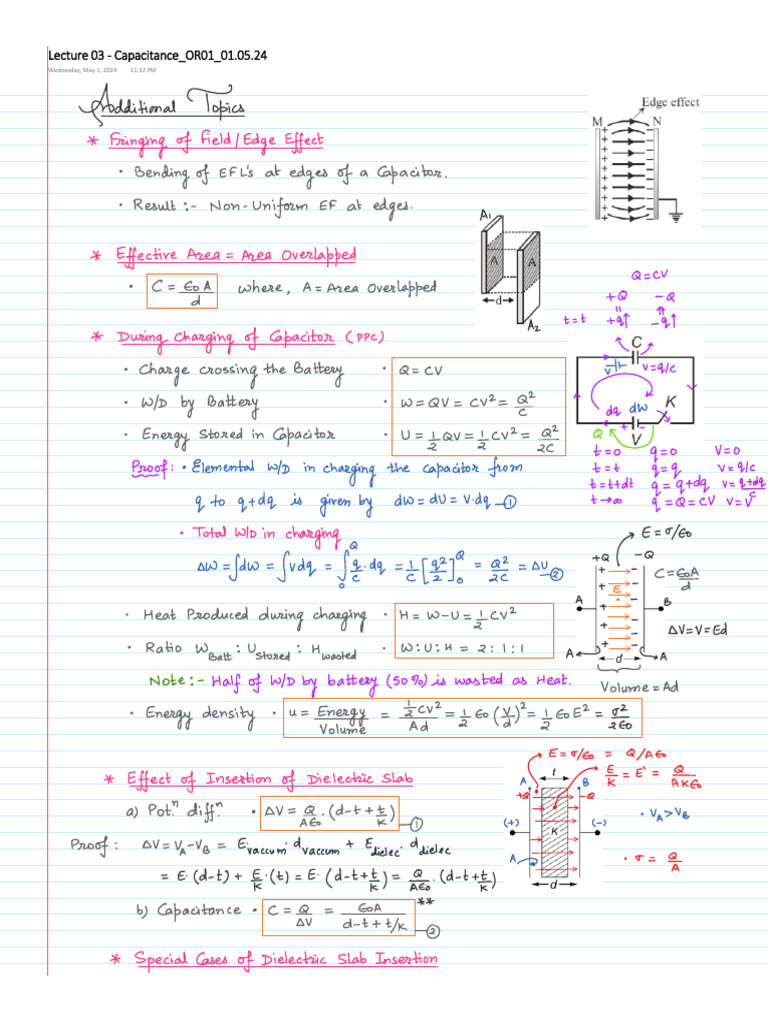 Lecture 03 - Capacitance_OR01_01.05.24
Wednesday, May 1, 2024 11:32 PM
Additional Topics
Edge effect
M N
* Fringing of Field/Edge Effect
• Bending of EFL's at edges of a Capacitor.
• Result :- Non-Uniform EF at edges.
* Effective Area = Area Overlapped
• C = ε0A/d where, A = Area Overlapped
A1
A A
d
A2
Q = CV
+Q -Q
t=t +q↑ -q↑
* During Charging of Capacitor (PPC)
• Charge crossing the Battery • Q = CV
• W/D by Battery • W = QV = CV² = Q²/C
• Energy Stored in Capacitor • U = 1/2 QV = 1/2 CV² = Q²/2C
C
V V=q/c
dq dW K
Q + - V
t=0 q=0 V=0
t=t q=q V=q/c
t=t+dt q=q+dq V=q+dq/c
t→∞ q=Q=CV V=V
Proof: • Elemental W/D in charging the capacitor from
q to q+dq is given by dW = dU = V.dq —①
• Total W/D in charging
ΔW = ∫dW = ∫Vdq = ∫₀^Q q/C.dq = 1/C [q²/2]₀^Q = Q²/2C = ΔU —②
E = σ/ε0
+Q -Q
C = ε0A/d
E
A B
ΔV=V=Ed
A d A
Volume = Ad
• Heat Produced during charging • H = W-U = 1/2 CV²
• Ratio W Batt : U Stored : H wasted • W:U:H = 2:1:1
Note:- Half of W/D by battery (50%) is wasted as Heat.
• Energy density • u = Energy/Volume = 1/2 CV²/Ad = 1/2 ε0 (V/d)² = 1/2 ε0E² = σ²/2ε0
* Effect of Insertion of Dielectric Slab
E = σ/ε0 = Q/Aε0
E/K = E' = Q/AKε0
t
A B
+Q -Q
(+) (-)
K
A
d
• VA > VB
• σ = Q/A
a) Pot.ⁿ diffⁿ • ΔV = Q/Aε0 . (d-t+t/K) —①
Proof: ΔV = VA-VB = Evaccum. dvaccum + Edielec. ddielec
= E.(d-t) + E/K.(t) = E.(d-t+t/K) = Q/Aε0 .(d-t+t/K)
b) Capacitance • C = Q/ΔV = ε0A/d-t+t/K ** —②
* Special Cases of Dielectric Slab Insertion